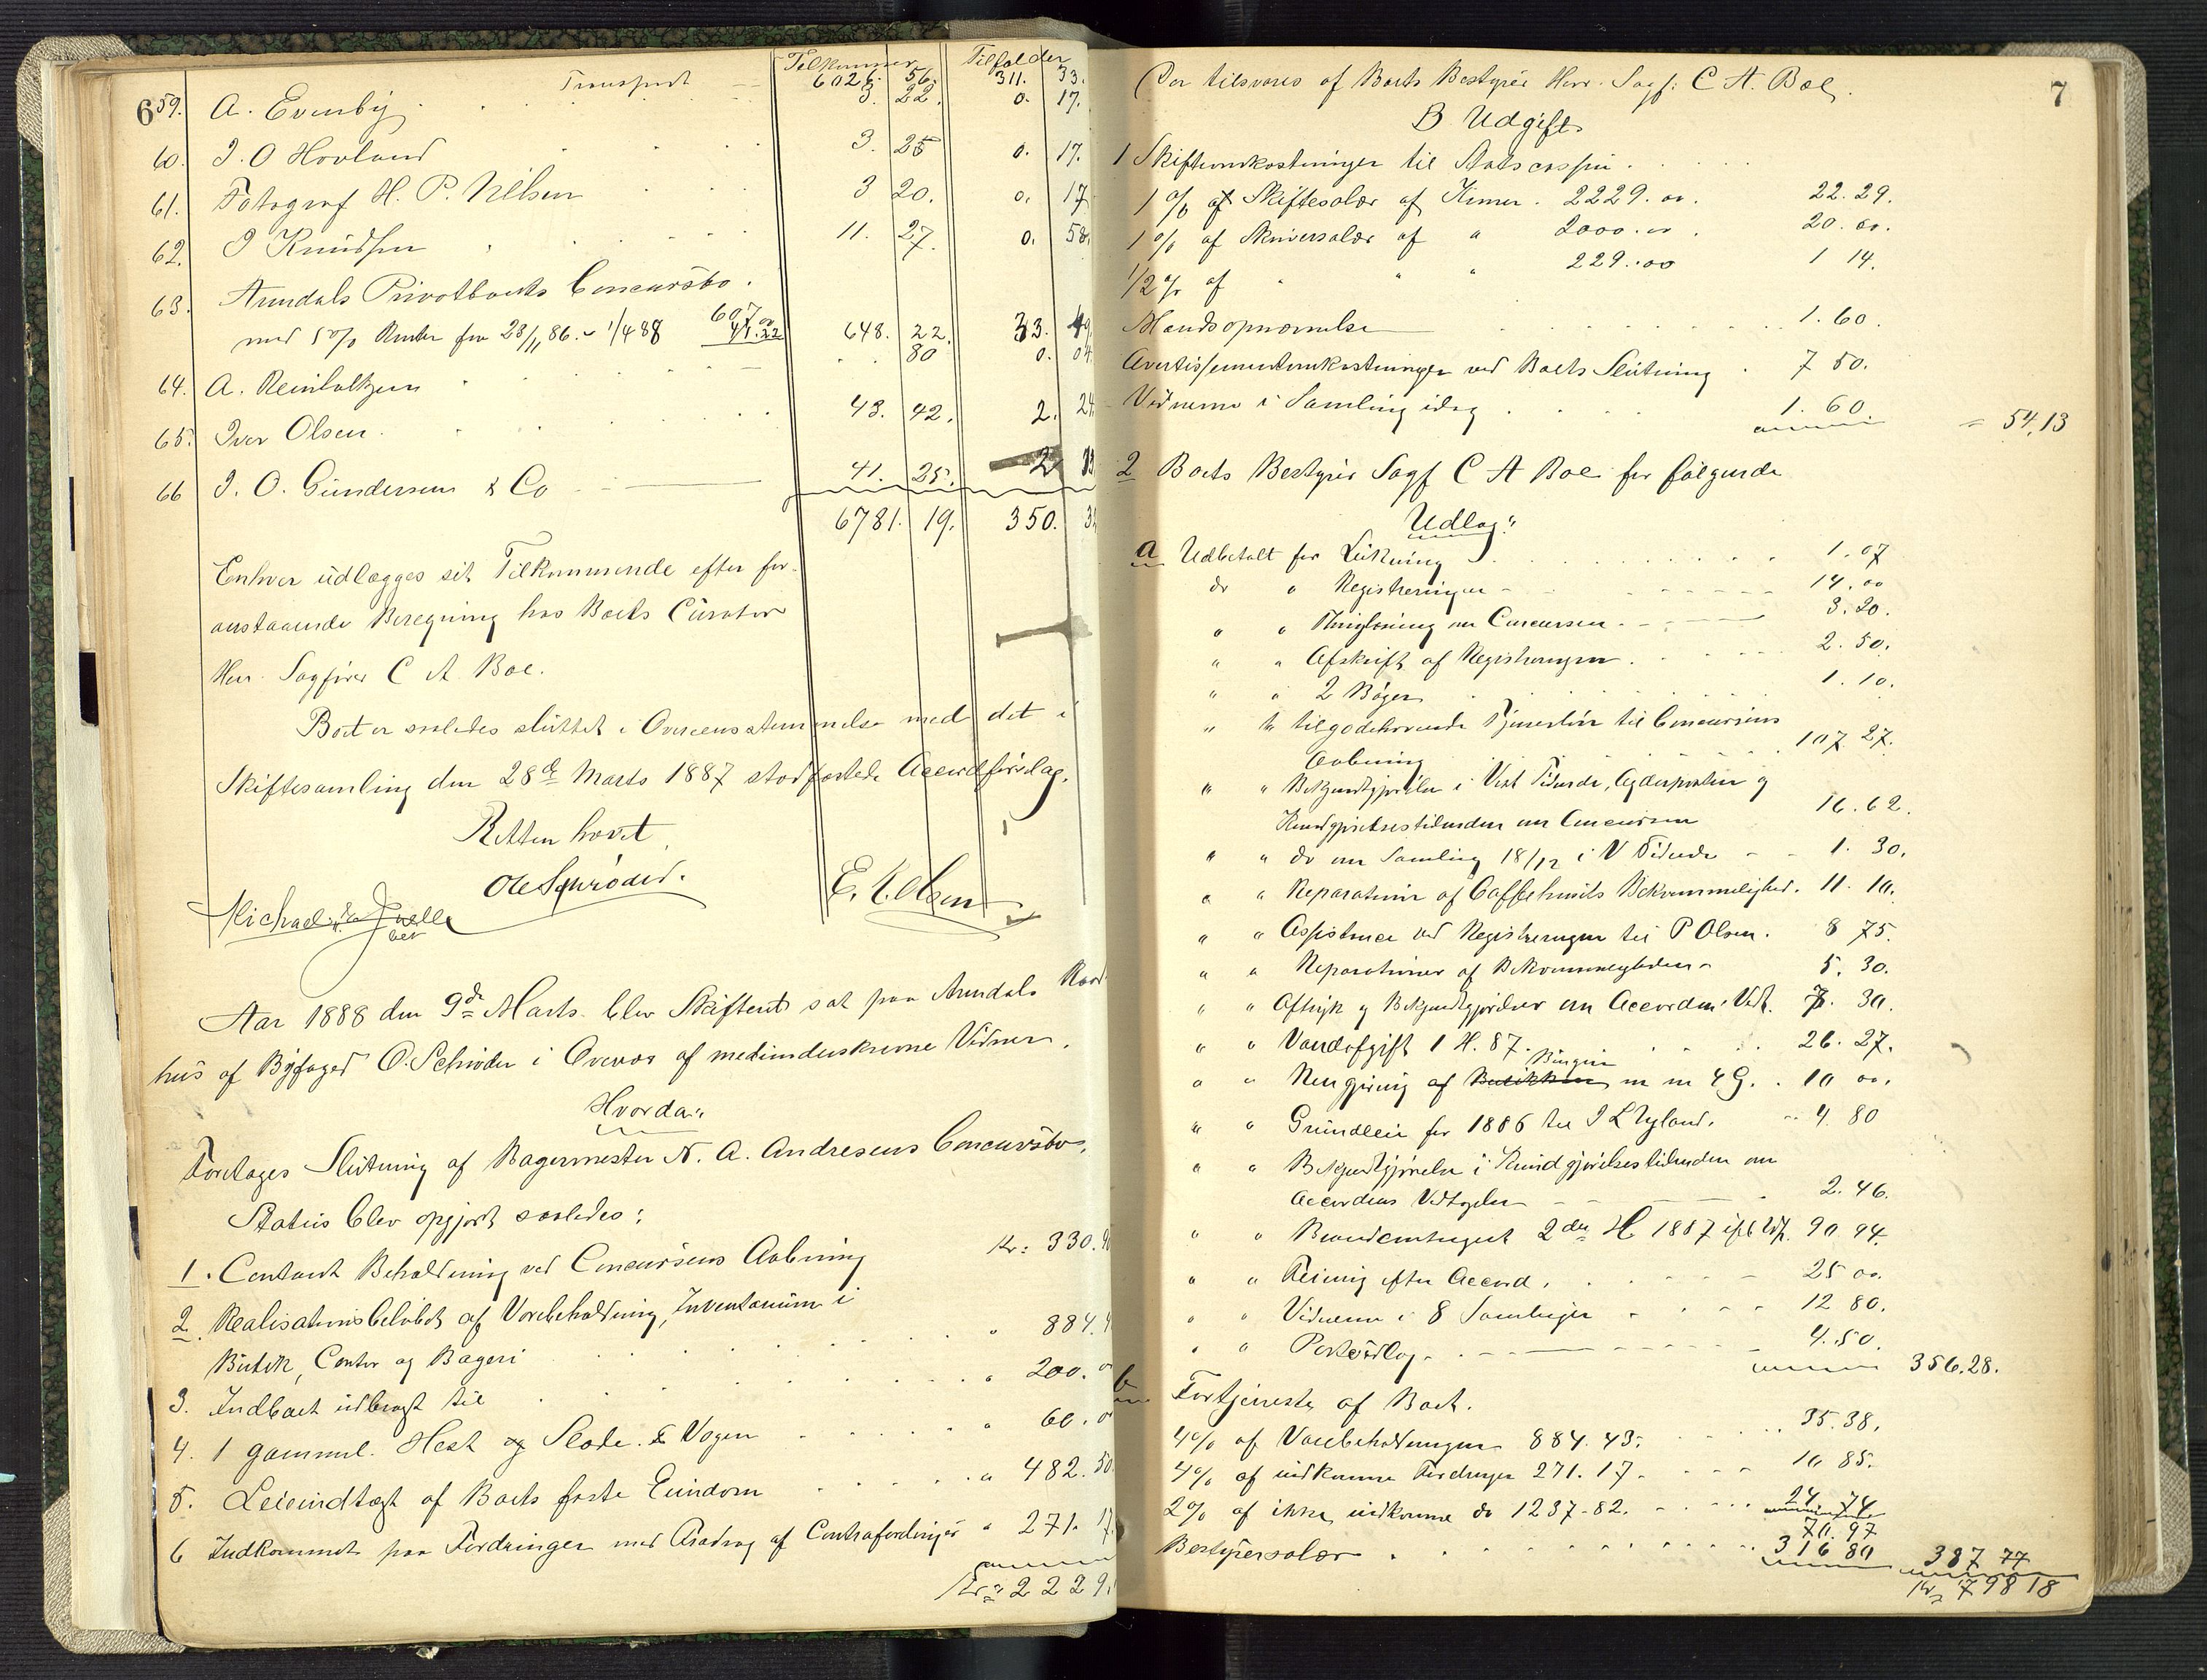 6
Tilkommer Tilfalder
Transport 6026. 56. 311. 33.
59. A. Evenby 3. 22. 0. 17.
60. J. O Hovland 3. 25 0. 17.
61. Fotograf H. P. Nilsen 3 20. 0. 17
62. J Knudsen 11. 27. 0. 58.
63. Arendals Privatbanks Concursbo.
607 00
med 5 % Renter fra 28/11 86. - 1/4 88 41.22 648. 22. 33. 49
64. A. Reinholtzen 80 0. 04
65. Iver Olsen 43. 42. 2. 24
66 J. O. Gundersen & Co 41. 25. 2
6781. 19. 350. 3
Enhver udlægges sit Tilkommende efter for-
anstaaende Beregning hos Boets Curator
Herr Sagfører C A Boe.
Boet er saaledes sluttet i Overeensstemmelse med det i
Skiftesamling den 28de Marts 1887 stadfæstede Accordforslag.
Retten hævet
O Schrøder.
Michael Juell E. T. Olsen
Aar 1888 den 9de Marts blev Skifteret sat paa Arendals Raad
hus af Byfoged O. Schrøder i Overvær af medunderskrevne Vidner.
Hvorda:
Foretages Slutning af Bagermester N. A. Andresens Concursbo.
Status blev opgjort saaledes:
1. Contant Beholdning ved Concursens Aabning Kr: 330.
2. Realisationsbeløbet af Varebeholdning, Inventarium i
Butik, Contor og Bageri " 884.4
3. Indboet udbragt til " 200.
4. 1 gammel Hest og Slæde & Vogn " 60.
5. Leieindtægt af Boets faste Eiendom " 482. 50
6 Indkommet paa Fordringer med Fradrag af Contrafordringer " 271. 17
Kr: 2229.
7
Der tilsvares af Boets Bestyrer Herr. Sagf: C A. Boe.
B Udgift
1 Skifteomkostninger til Statscassen
1 % af Skiftesalær af Kroner. 2229. 00. 22. 29.
1 % af Skriversalær af " 2000. 00. 20. 00.
1/2 % af " " " 229. 00 1 14.
Mandsopnævnelse 1. 60.
Avertissementsomkostninger ved Boets Slutning 7 50.
Vidnerne i Samling idag 1. 60. = 54,13
2 Boets Bestyrer Sagf C A Boe for følgende
Udlæg:
a Udbetalt for Lukning 1. 07
do " Registreringen 14. 00
" " Thinglæsning om Concursen 3. 20.
" " Afskrift af Registreringen 2. 50.
" " 2 Bøger 1. 10.
" " tilgodehavende Tjenerløn til Concursens
Aabning 107 27.
" " Bekjendtgjørelse i Vest Tidende, Agdersposten og
Kundgjørelsestidenden om Concursen 16. 62.
" " do om Samling 18/12 i V Tidende 1. 30.
" " Reparationer af Caffehusets Bekvemmelighed. 11. 10.
" " Assistance ved Registreringen til P Olsen. 8 75.
" " Reparationer af Bekvemmeligheden 5. 30.
" " Aftryk og Bekjendtgjørelser om Accorden i Vest. 7. 30.
" " Vandafgift 1 H. 87. 26. 27.
" " Rengjøring af Butikken m m 4 G. 10 00.
" " Grundleie for 1886 til J L Ugland. 4 80
" " Bekjendtgjørelse i Kundgjørelsestidenden om
Accordens Vedtagelse 2. 46.
" " Brandcontingent 2den H 1887 90 94.
" " Reising efter Accord. 25 00.
" " Vidnerne i 8 Samlinger 12 80.
" " Portoudlæg 4. 50. 356.28.
b Fortjeneste af Boet.
4 % af Varebeholdningen 884. 43. 35. 38.
4 % af indkomne Fordringer 271. 17. 10 85.
2 % af ikke indkomne do 1237-82. 24 74
70. 97
Bestyrersalær 316 80 387 77
Kr 798 18